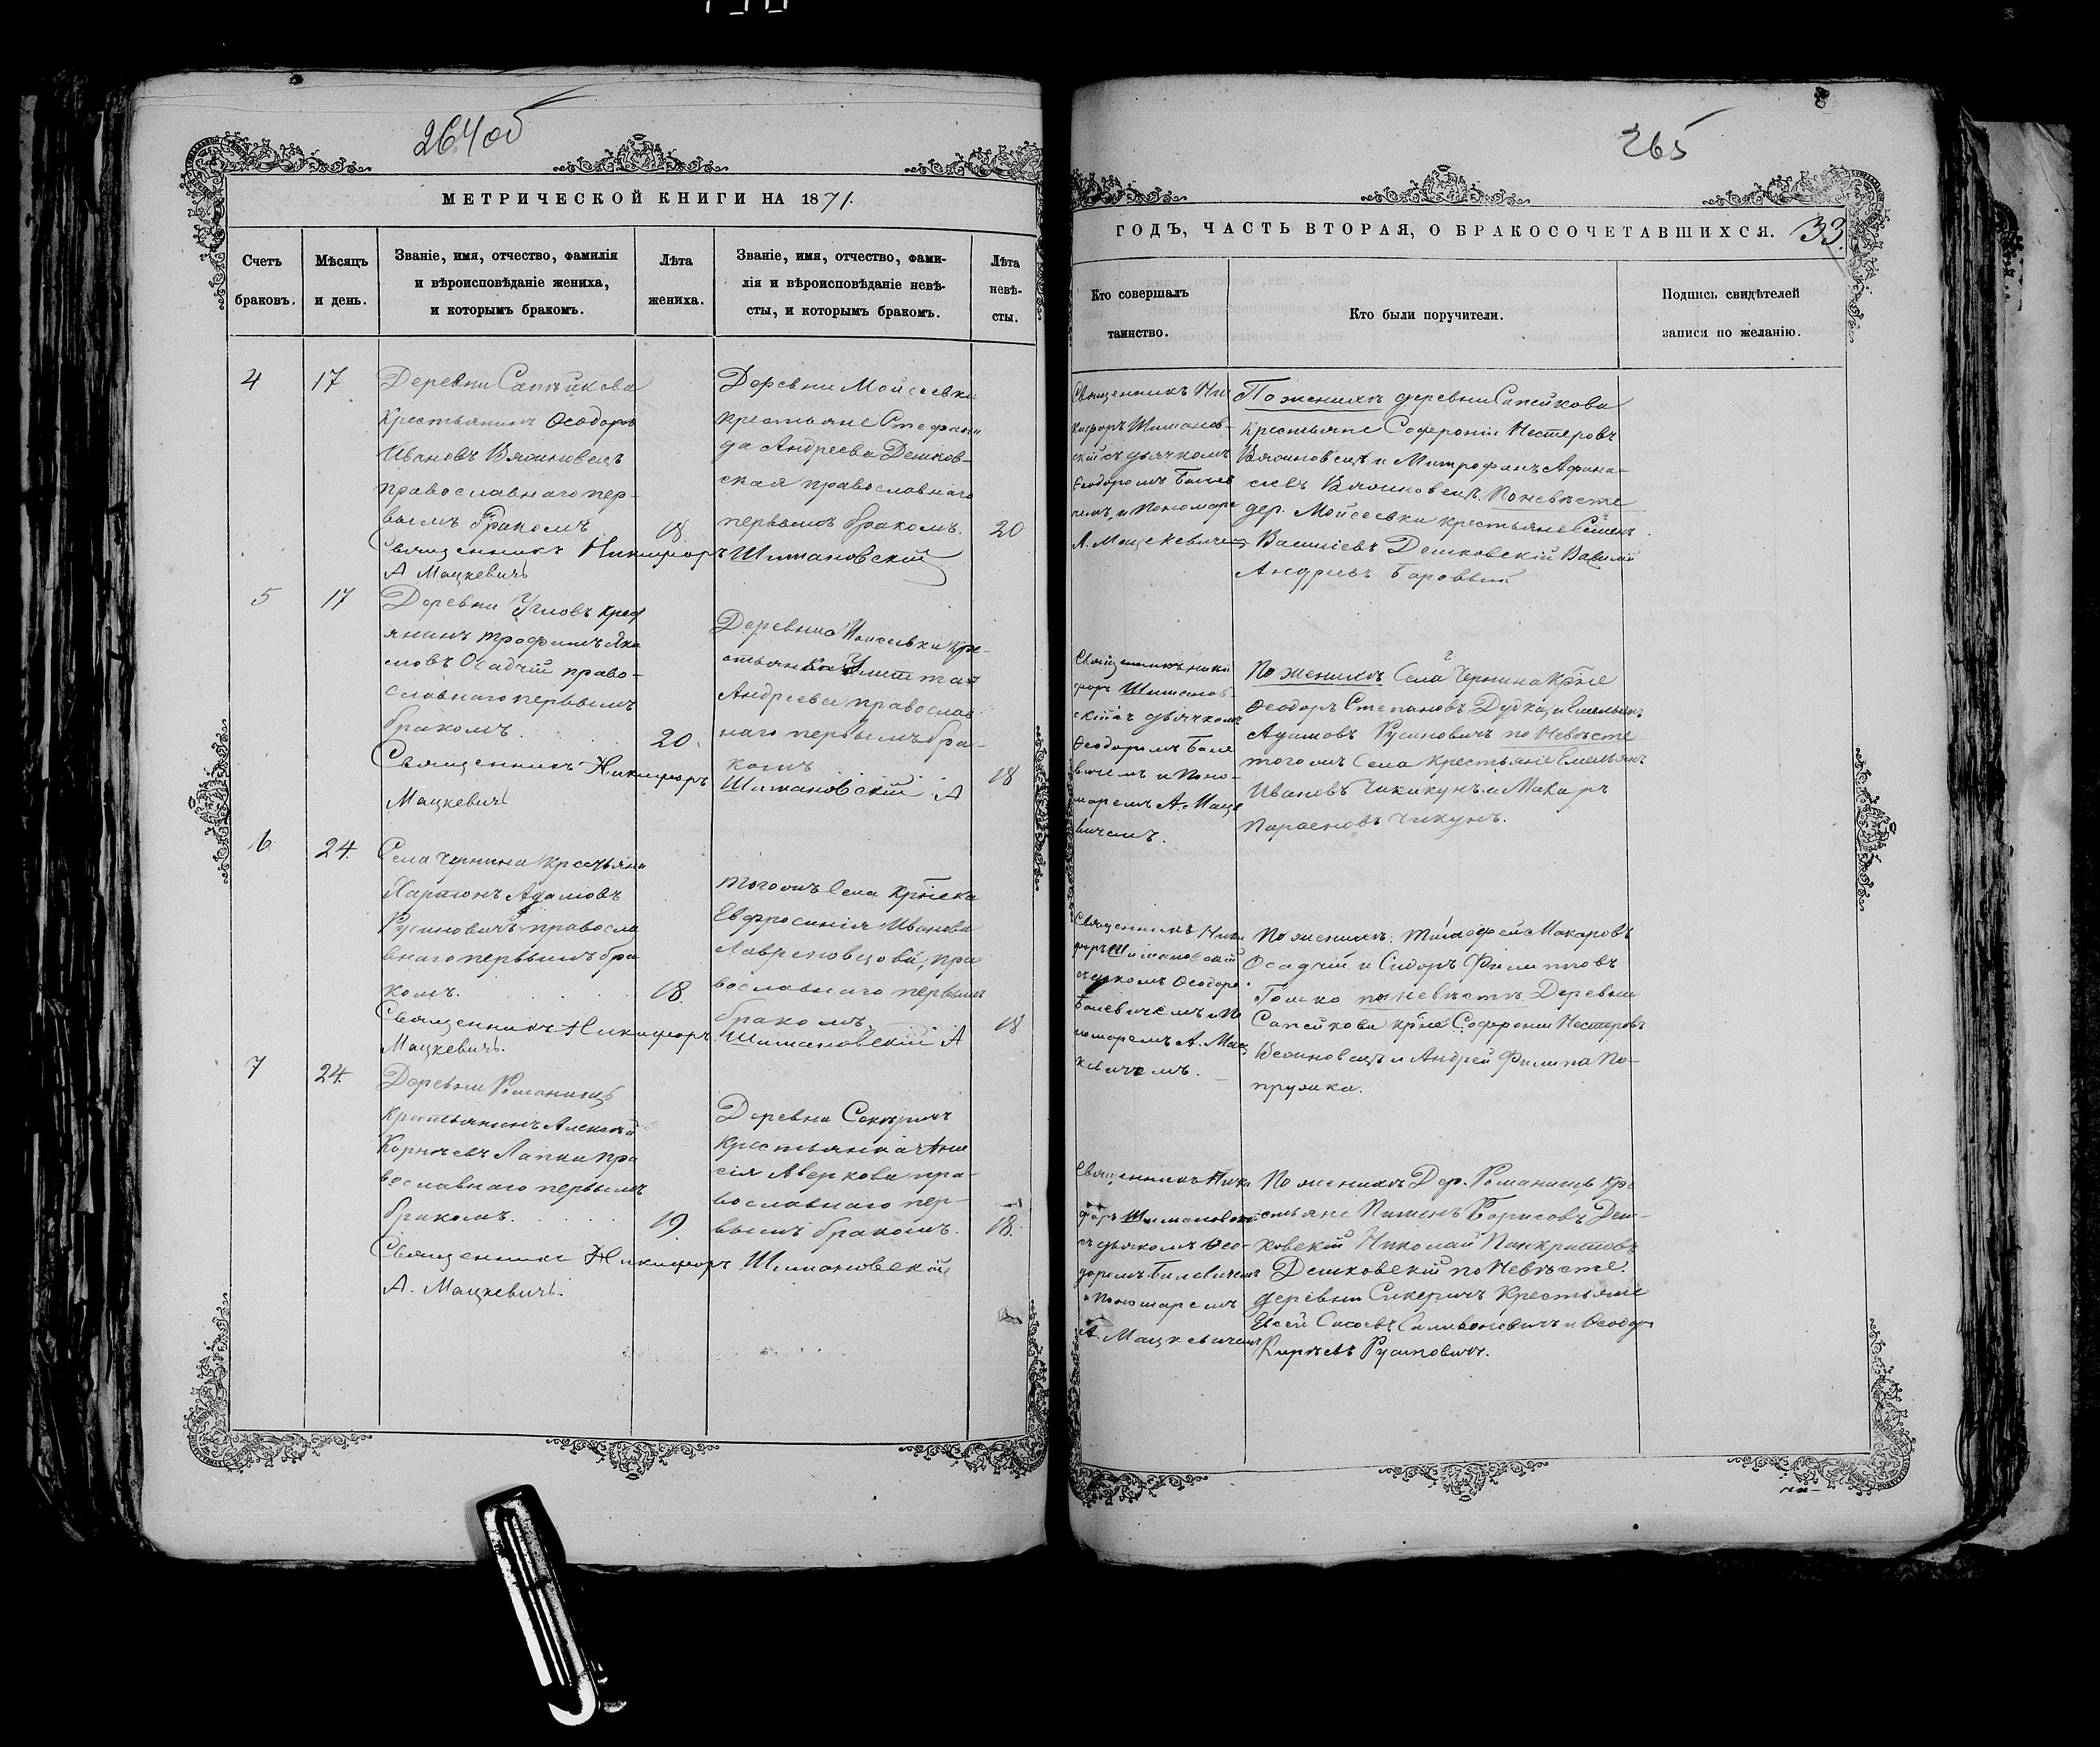 264 об
МЕТРИЧЕСКОЙ КНИГИ НА 1871.
Счетъ
браковъ.
Мѣсяцъ
и день.
Званіе, имя, отчество, фамилія
и вѣроисповѣданіе жениха,
и которымъ бракомъ.
Лѣта
жениха.
Званіе, имя, отчество, фами-
лія и вѣроисповѣданіе невѣ-
сты, и которымъ бракомъ.
Лѣта
невѣ-
сты.
4
17
Деревни Сапѣйкова
Крестьянинъ Ѳеодоръ
Ивановъ
православнаго пер-
вымъ бракомъ
18
Деревни Мойсеевки
крестьяне Стефани
да Андреева Дешков-
ская православнаго
первымъ бракомъ.
20
Священникъ Никифоръ Шимановскій
А Мацкевичъ
5
17
Деревни Угловъ крес
янинъ Трофимъ Яко
мовъ Осадчій право-
славнаго первымъ
бракомъ.
20.
Деревни Моисеевки кре-
стьянка Улитта
Андреева православ
наго первымъ бра-
комъ
18
Священникъ Никифоръ Шимановскій А
Мацкевичъ
6
24.
Села Чернина крестьяни
Харитонъ Адамовъ
Русиновичъ правосла
внаго первымъ бра
комъ.
18.
тогожъ села
Евфросинія Иванова
Лавреновцова, пра
вославнаго первымъ
бракомъ
18
Священникъ Никифоръ Шимановскій А
Мацкевичъ.
7
24.
Деревни Романищъ
крестьянинъ Алексѣй
Корнѣевъ Лапки пра
вославнаго первымъ
бракомъ.
19.
Деревни Секѣричъ
крестьянка Ани
сія Аверкова пра-
вославнаго пер-
вымъ бракомъ.
18.
Священникъ Никифоръ Шимановскій
А. Мацкевичъ.
265
ГОДЪ, ЧАСТЬ ВТОРАЯ, О БРАКОСОЧЕТАВШИХСЯ. 33.
Кто совершалъ
таинство.
Кто были поручители.
Подпись свидѣтелей
записи по желанію.
Священникъ Ни
кифоръ Шиманов-
скій съ дьячкомъ
Ѳеодоромъ
чемъ, и Пономаре
А. Мацкевичемъ
По женихѣ деревни Сапейкова
крестьяне Софероній Нестеровъ
и Митрофанъ Афана-
сіевъ По невѣсте
дер. Мойсеевки крестьяне Семенъ
Василіевъ Дешковскій Василій
Андреевъ Боровый
Священникъ Ники
форъ Шиманов-
скій съ дьячкомъ
Ѳеодоромъ Бале
вичемъ и Поно-
маремъ А. Мацке
вичемъ.
По женихѣ Села Чернина
Ѳеодоръ Степановъ Дудка, и Емельянъ
Адамовъ Русиновичъ по Невѣсте
тогожъ Села крестьяне Емельянъ
Ивановъ Чикикунъ и Макаръ
Парѳеновъ Чикунъ.
Священникъ Ники
форъ Шимановскій
Ѳеодоро
Балевичемъ и По
номаремъ А. Мац
кевичемъ.
По женихѣ: Тимофей Макаровъ
Осадчій и Сидоръ Филипповъ
по невѣстѣ Деревни
Сапейкова Софероній Нестеровъ
и Андрей Филипа По-
пружка.
Священникъ Ники
форъ Шимановскій
съ дьякомъ Ѳео-
доромъ Балевичемъ
и Пономаремъ
А. Мацкевичемъ
По женихѣ Дер. Романищъ Кре
стьяне Пименъ Борисовъ Деш-
ковскій Николай Панкратовъ
Дешковскій по Невѣсте
деревни Сикеричъ Крестьяне
и Ѳеодор
Кирѣевъ Русиновичъ.